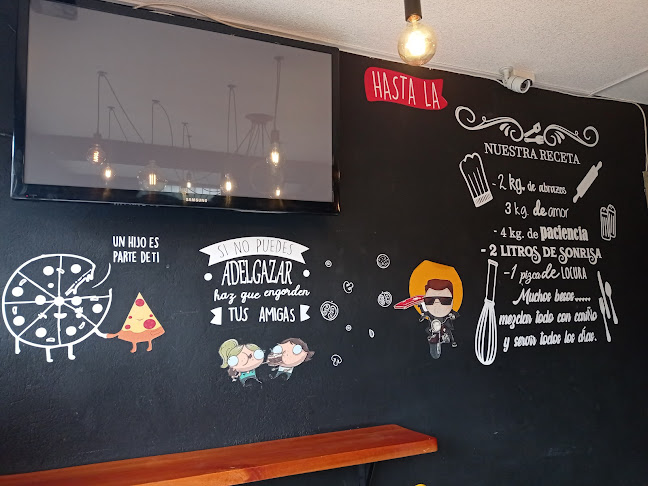 SAMSUNG
HASTA LA
UN HIJO ES
PARTE DE TI
SI NO PUEDES
ADELGAZAR
haz que engorden
TUS AMIGAS
NUESTRA RECETA
- 2 kg. de abrazos
3 kg. de amor
- 4 kg. de paciencia
- 2 LITROS DE SONRISA
- 1 pizca de LOCURA
Muchos besos.....
mezclar todo con cariño
y servir todos los días.